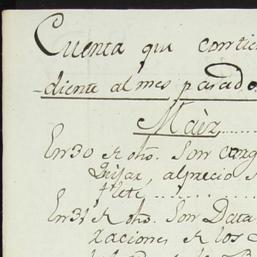 Cuenta que contie
diente al mes pasado
Maiz
En 30 de dho. Son carg
Quijar, al precio
flete
En 31 de dho. Son Data
xaciones de los